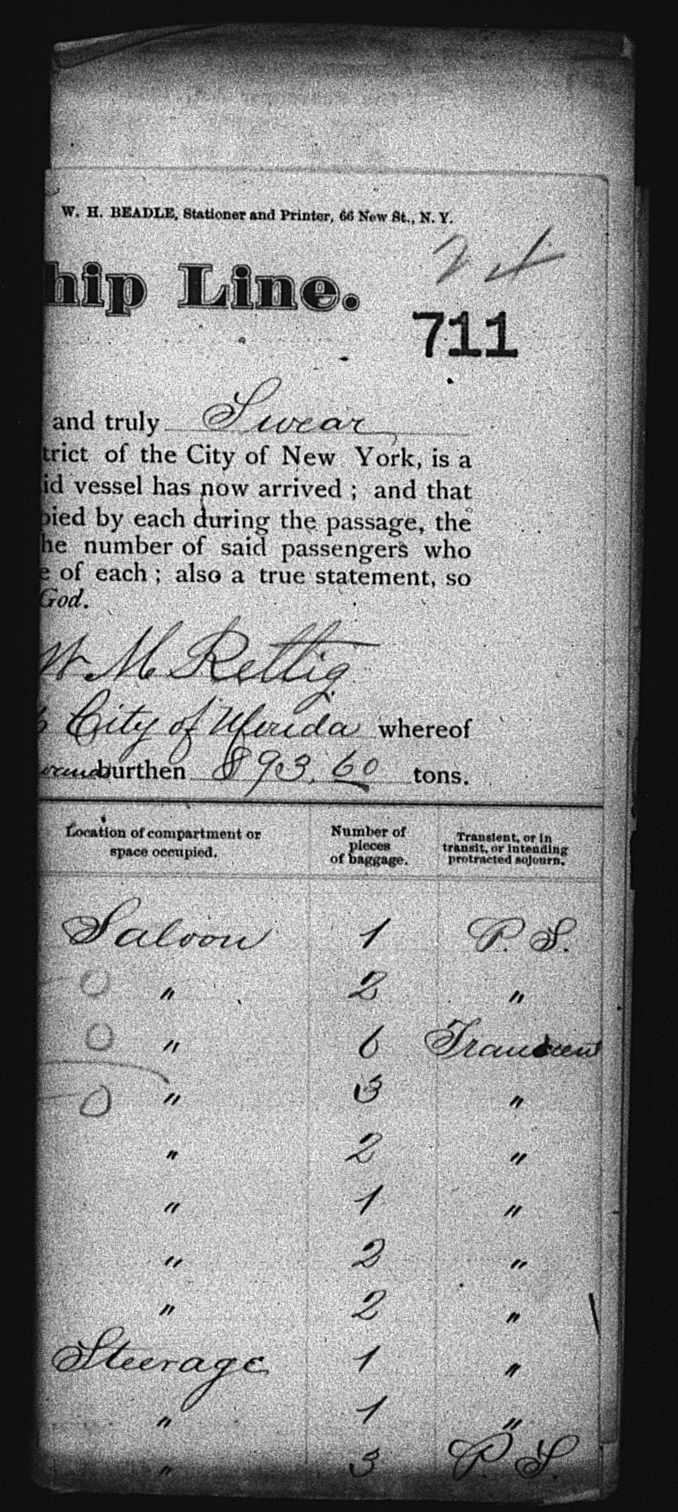 W. H. BEADLE, Stationer and Printer, 66 New St., N. Y.
hip Line.
711
and truly Swear
trict of the City of New York, is a
id vessel has now arrived ; and that
pied by each during the passage, the
he number of said passengers who
e of each ; also a true statement, so
God.
W M Rettig
City of Merida whereof
burthen 893.60 tons.
Location of compartment or space occupied. Number of pieces of baggage. Transient, or in transit, or intending protracted sojourn.
Saloon 1 P. S.
0 " 2 "
0 " 6 Transient
0 " 3 "
" 2 "
" 1 "
" 2 "
" 2 "
Steerage 1 "
" 1 "
" 3 P. S.